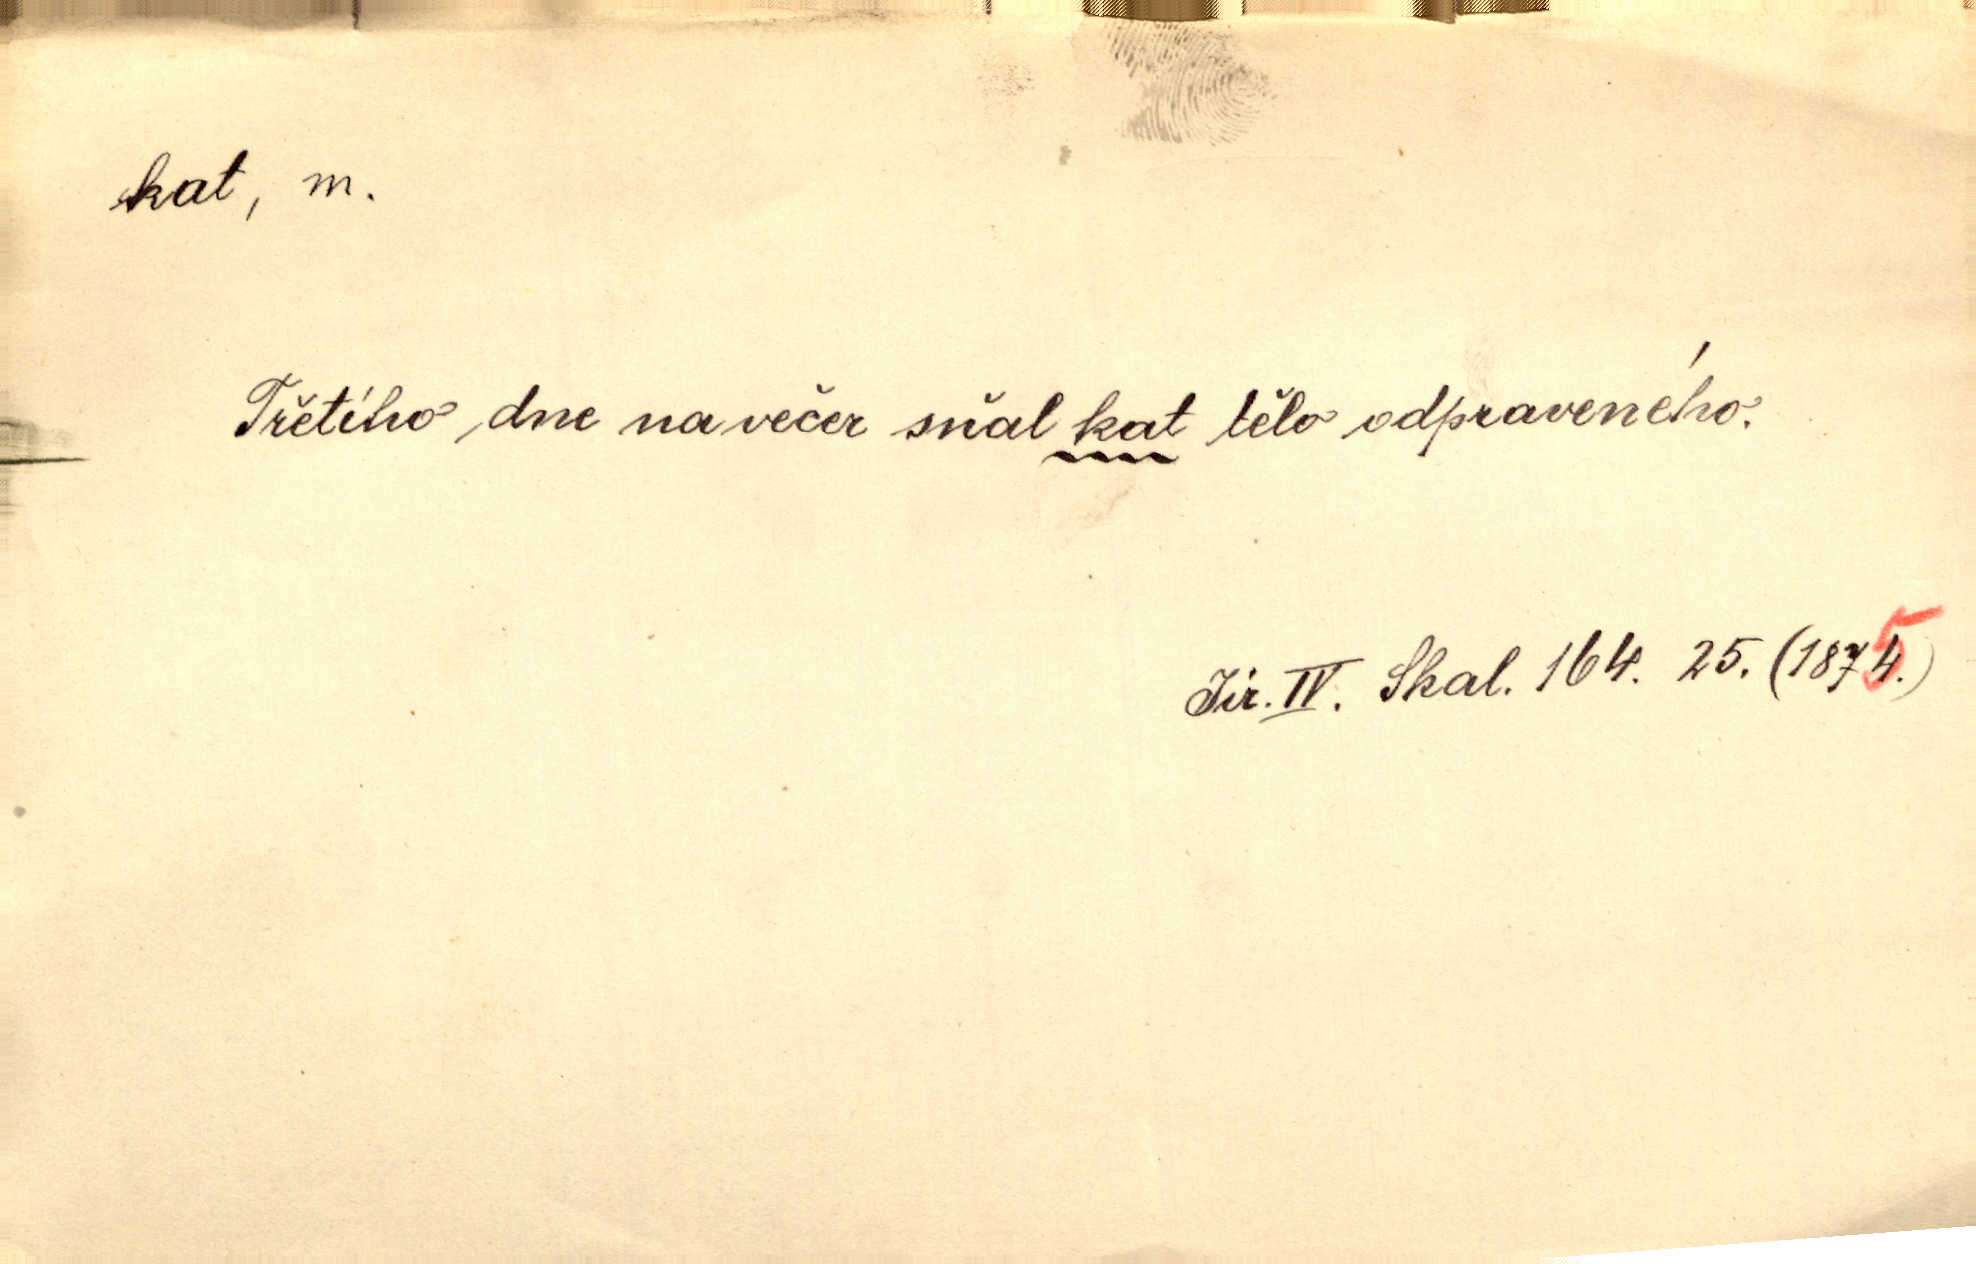 kat, m.
Třetího dne na večer sňal kat tělo odpraveného.
Jir. IV. Skal. 164. 25. (1875.)